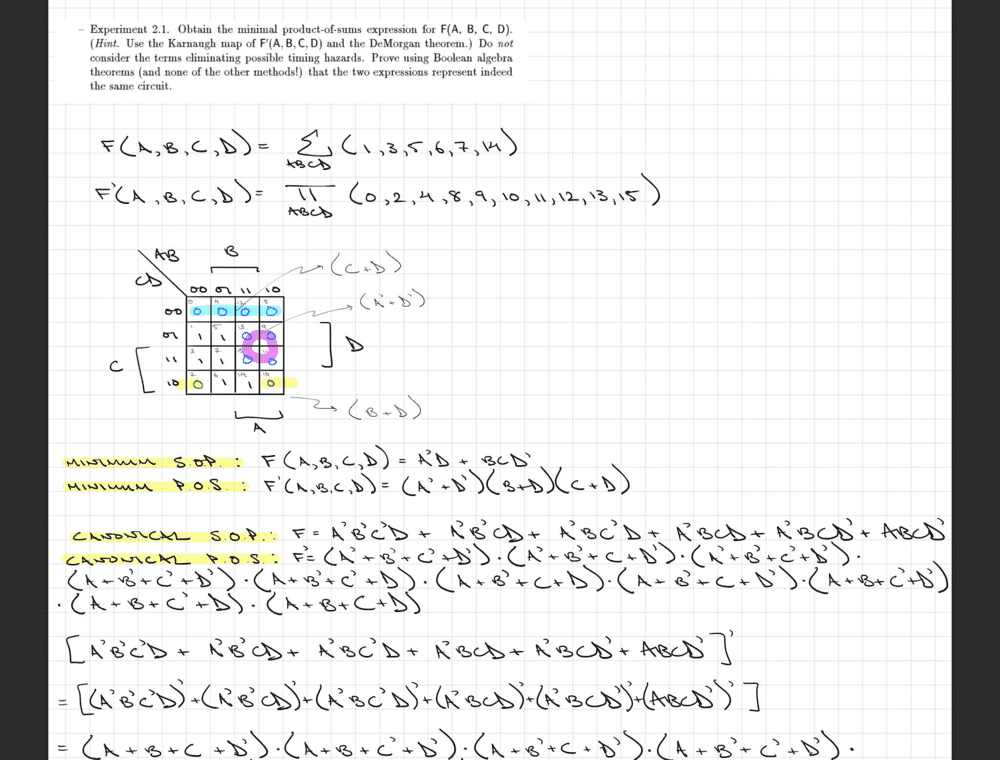 – Experiment 2.1. Obtain the minimal product-of-sums expression for F(A, B, C, D).
(Hint. Use the Karnaugh map of F′(A, B, C, D) and the DeMorgan theorem.) Do not
consider the terms eliminating possible timing hazards. Prove using Boolean algebra
theorems (and none of the other methods!) that the two expressions represent indeed
the same circuit.
F(A,B,C,D) = Σ ABCD (1,3,5,6,7,14)
F'(A,B,C,D) = Π ABCD (0,2,4,8,9,10,11,12,13,15)
AB
B
CD
(C+D)
00 01 11 10
(A'+D')
00 0 0 0 0
01 1 1 0 0
D
C
11 1 1 0 0
10 0 1 1 0
(B+D)
A
MINIMUM S.O.P. : F(A,B,C,D) = A'D + BCD'
MINIMUM P.O.S. : F'(A,B,C,D) = (A'+D')(B+D)(C+D)
CANONICAL S.O.P. : F = A'B'C'D + A'B'CD + A'BC'D + A'BCD + A'BCD' + ABCD'
CANONICAL P.O.S. : F' = (A'+B'+C'+D')·(A'+B'+C+D')·(A'+B'+C'+D')·
(A+B'+C'+D')·(A+B'+C'+D)·(A+B'+C+D)·(A+B'+C+D')·(A+B+C'+D')
·(A+B+C'+D)·(A+B+C+D)
[A'B'C'D + A'B'CD + A'BC'D + A'BCD + A'BCD' + ABCD']'
= [(A'B'C'D)'+(A'B'CD)'+(A'BC'D)'+(A'BCD)'+(A'BCD')'+(ABCD')']
= (A+B+C+D')·(A+B+C'+D')·(A+B'+C+D')·(A+B'+C'+D')·